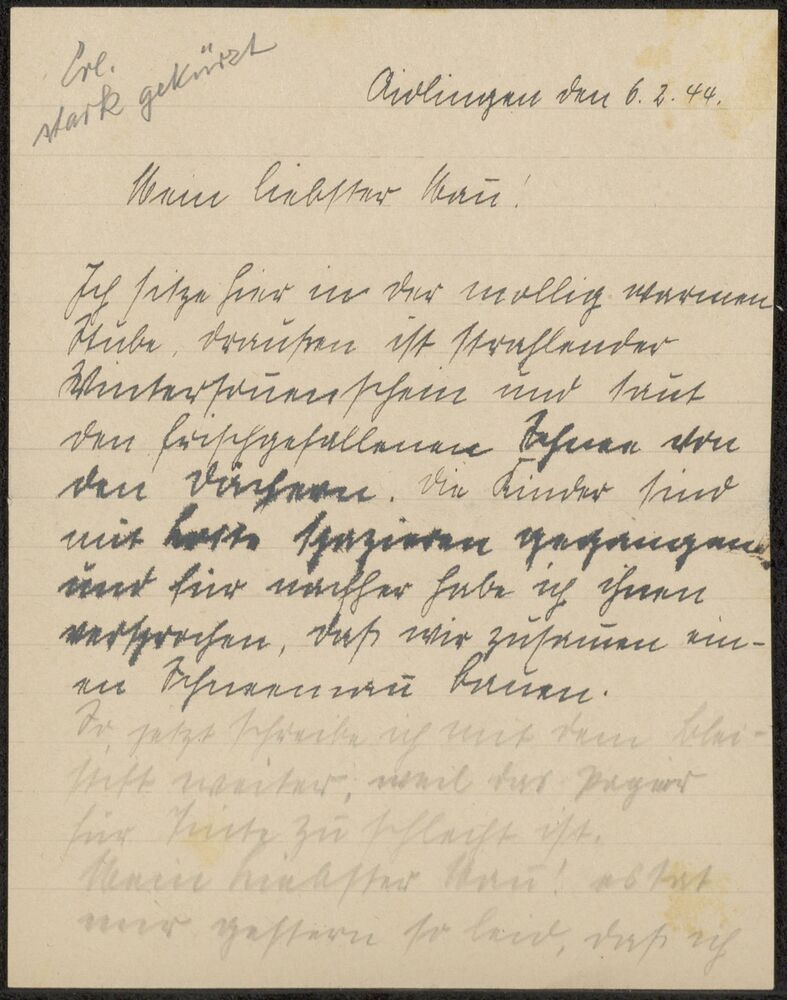 Erl.
stark gekürzt
Aidlingen den 6. 2. 44.
Mein liebster Mañ!
Ich sitze hier in der mollig warmen
Stube, draußen ist strahlender
Wintersoñenschein und taut
den frischgefallenen Schnee von
den Dächern. Die Kinder sind
mit spazieren gegangen
und für nachher habe ich ihnen
versprochen, daß wir zusam̄en ein-
en Schneemañ bauen.
So, jetzt schreibe ich mit dem Blei-
stift weiter, weil das Papier
für Tinte zu schlecht ist.
Mein liebster Mañ! es tat
mir gestern so leid, daß ich